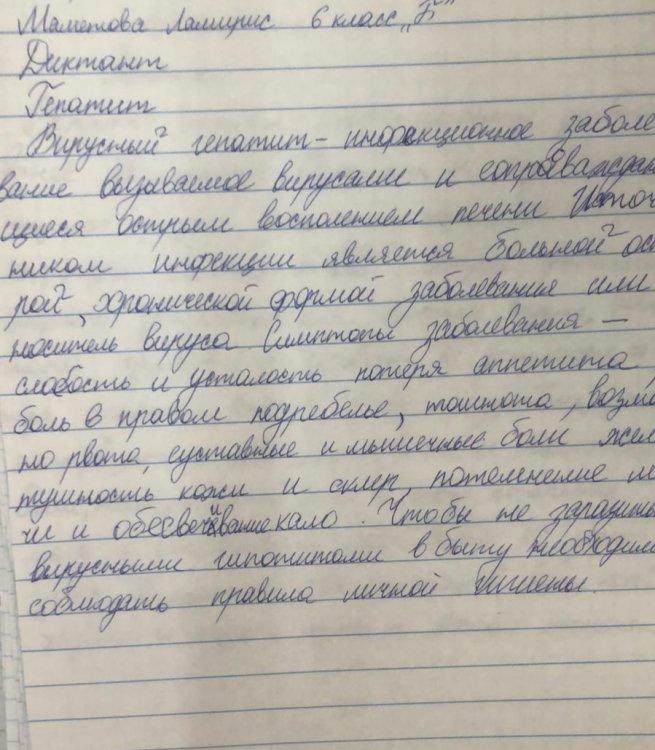 Маметова 6 класс „Б"
Диктант
Гепатит
Вирусный гепатит – инфекционное заболе
вание вызываемое вирусами и сопровождаю
щиеся острым восполением печени Источ
ником инфекции является больной ост
рой, хронической формой заболевания или
носитель вируса Симптомы заболевания —
слабость и усталость потеря аппетита,
боль в правом подребелье, тошнота, возмо
но рвота, суставные и мышечные боли жел
тушность кожи и склер, потемнение мо
чи и обесвечивание кало. Чтобы не заразить
вирусными гипотитами в быту необходимо
соблюдать правила личной гигиены.